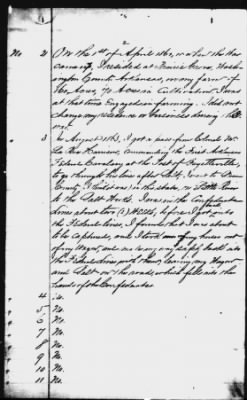 No 2 On the 1st of April 1861, when the War
came up, I resided at Prairie Grove, Wash-
ington County Arkansas, on my farm of
160 Acres, 70 Acres in Cultivation. I was
at that time Engaged in farming. I did not
change my residence or business during the
war.
3 In August 1863, I got a pass from Colonel M.
La Rue Harrison, Commanding the First Arkansas
Federal Cavalry at the Post of Fayetteville,
to go through the lines after Salt, down to
County, in the state, or
at the Salt Works. I was in the Confederate
lines about two (2) Weeks, before I got into
the Federal lines, I found that I was about
to be captured, and I took my horses out
of my Wagon, and made my way safely back into
the Federal lines with them, leaving my Wagon
and Salt on the road, which fell into the
hands of the Confederates.
4 No.
5 No.
6 No.
7 No.
8 No.
9 No.
10 No.
11 No.